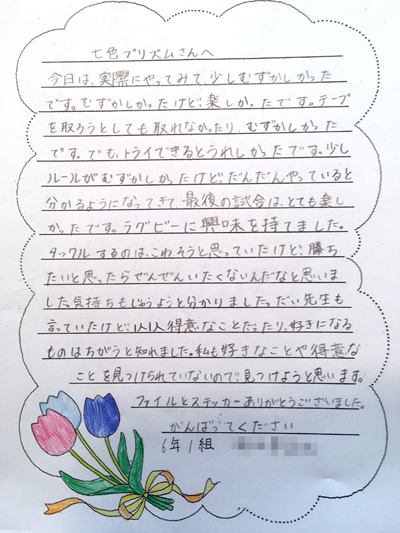 七色プリズムさんへ
今日は、実際にやってみて、少しむずかしかった
です。むずかしかったけど、楽しかったです。テープ
を取ろうとしても取れなかったり、むずかしかった
です。でも、トライできるとうれしかったです。少し
ルールがむずかしかったけど、だんだんやっていると
分かるようになってきて、最後の試合は、とても楽し
かったです。ラグビーに興味を持てました。
タックルするのは、こわそうと思っていたけど、勝ち
たいと思ったらぜんぜんいたくないんだなと思いま
した。気持ちもじゅうようと分かりました。だい先生も
言っていたけど、1人1人得意なことだったり、好きになる
ものはちがうと知れました。私も好きなことや得意な
ことを見つけられていないので、見つけようと思います。
ファイルとステッカーありがとうございました。
がんばってください
6年1組